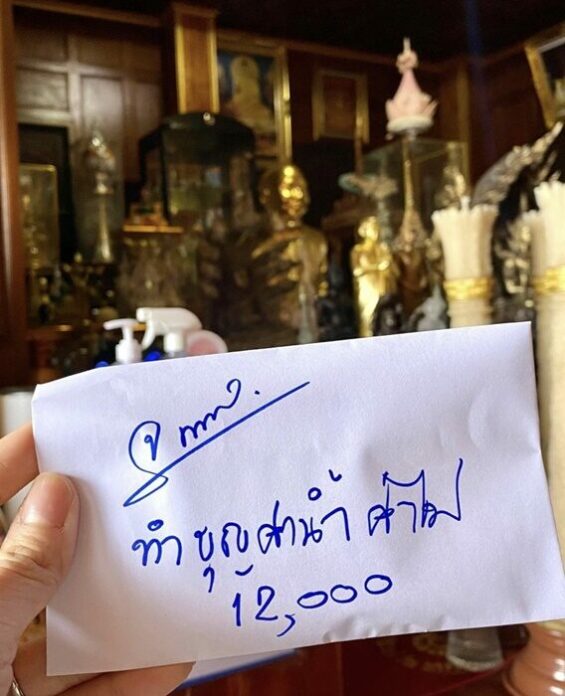 ทำบุญค่าน้ำ ค่าไฟ
12,000